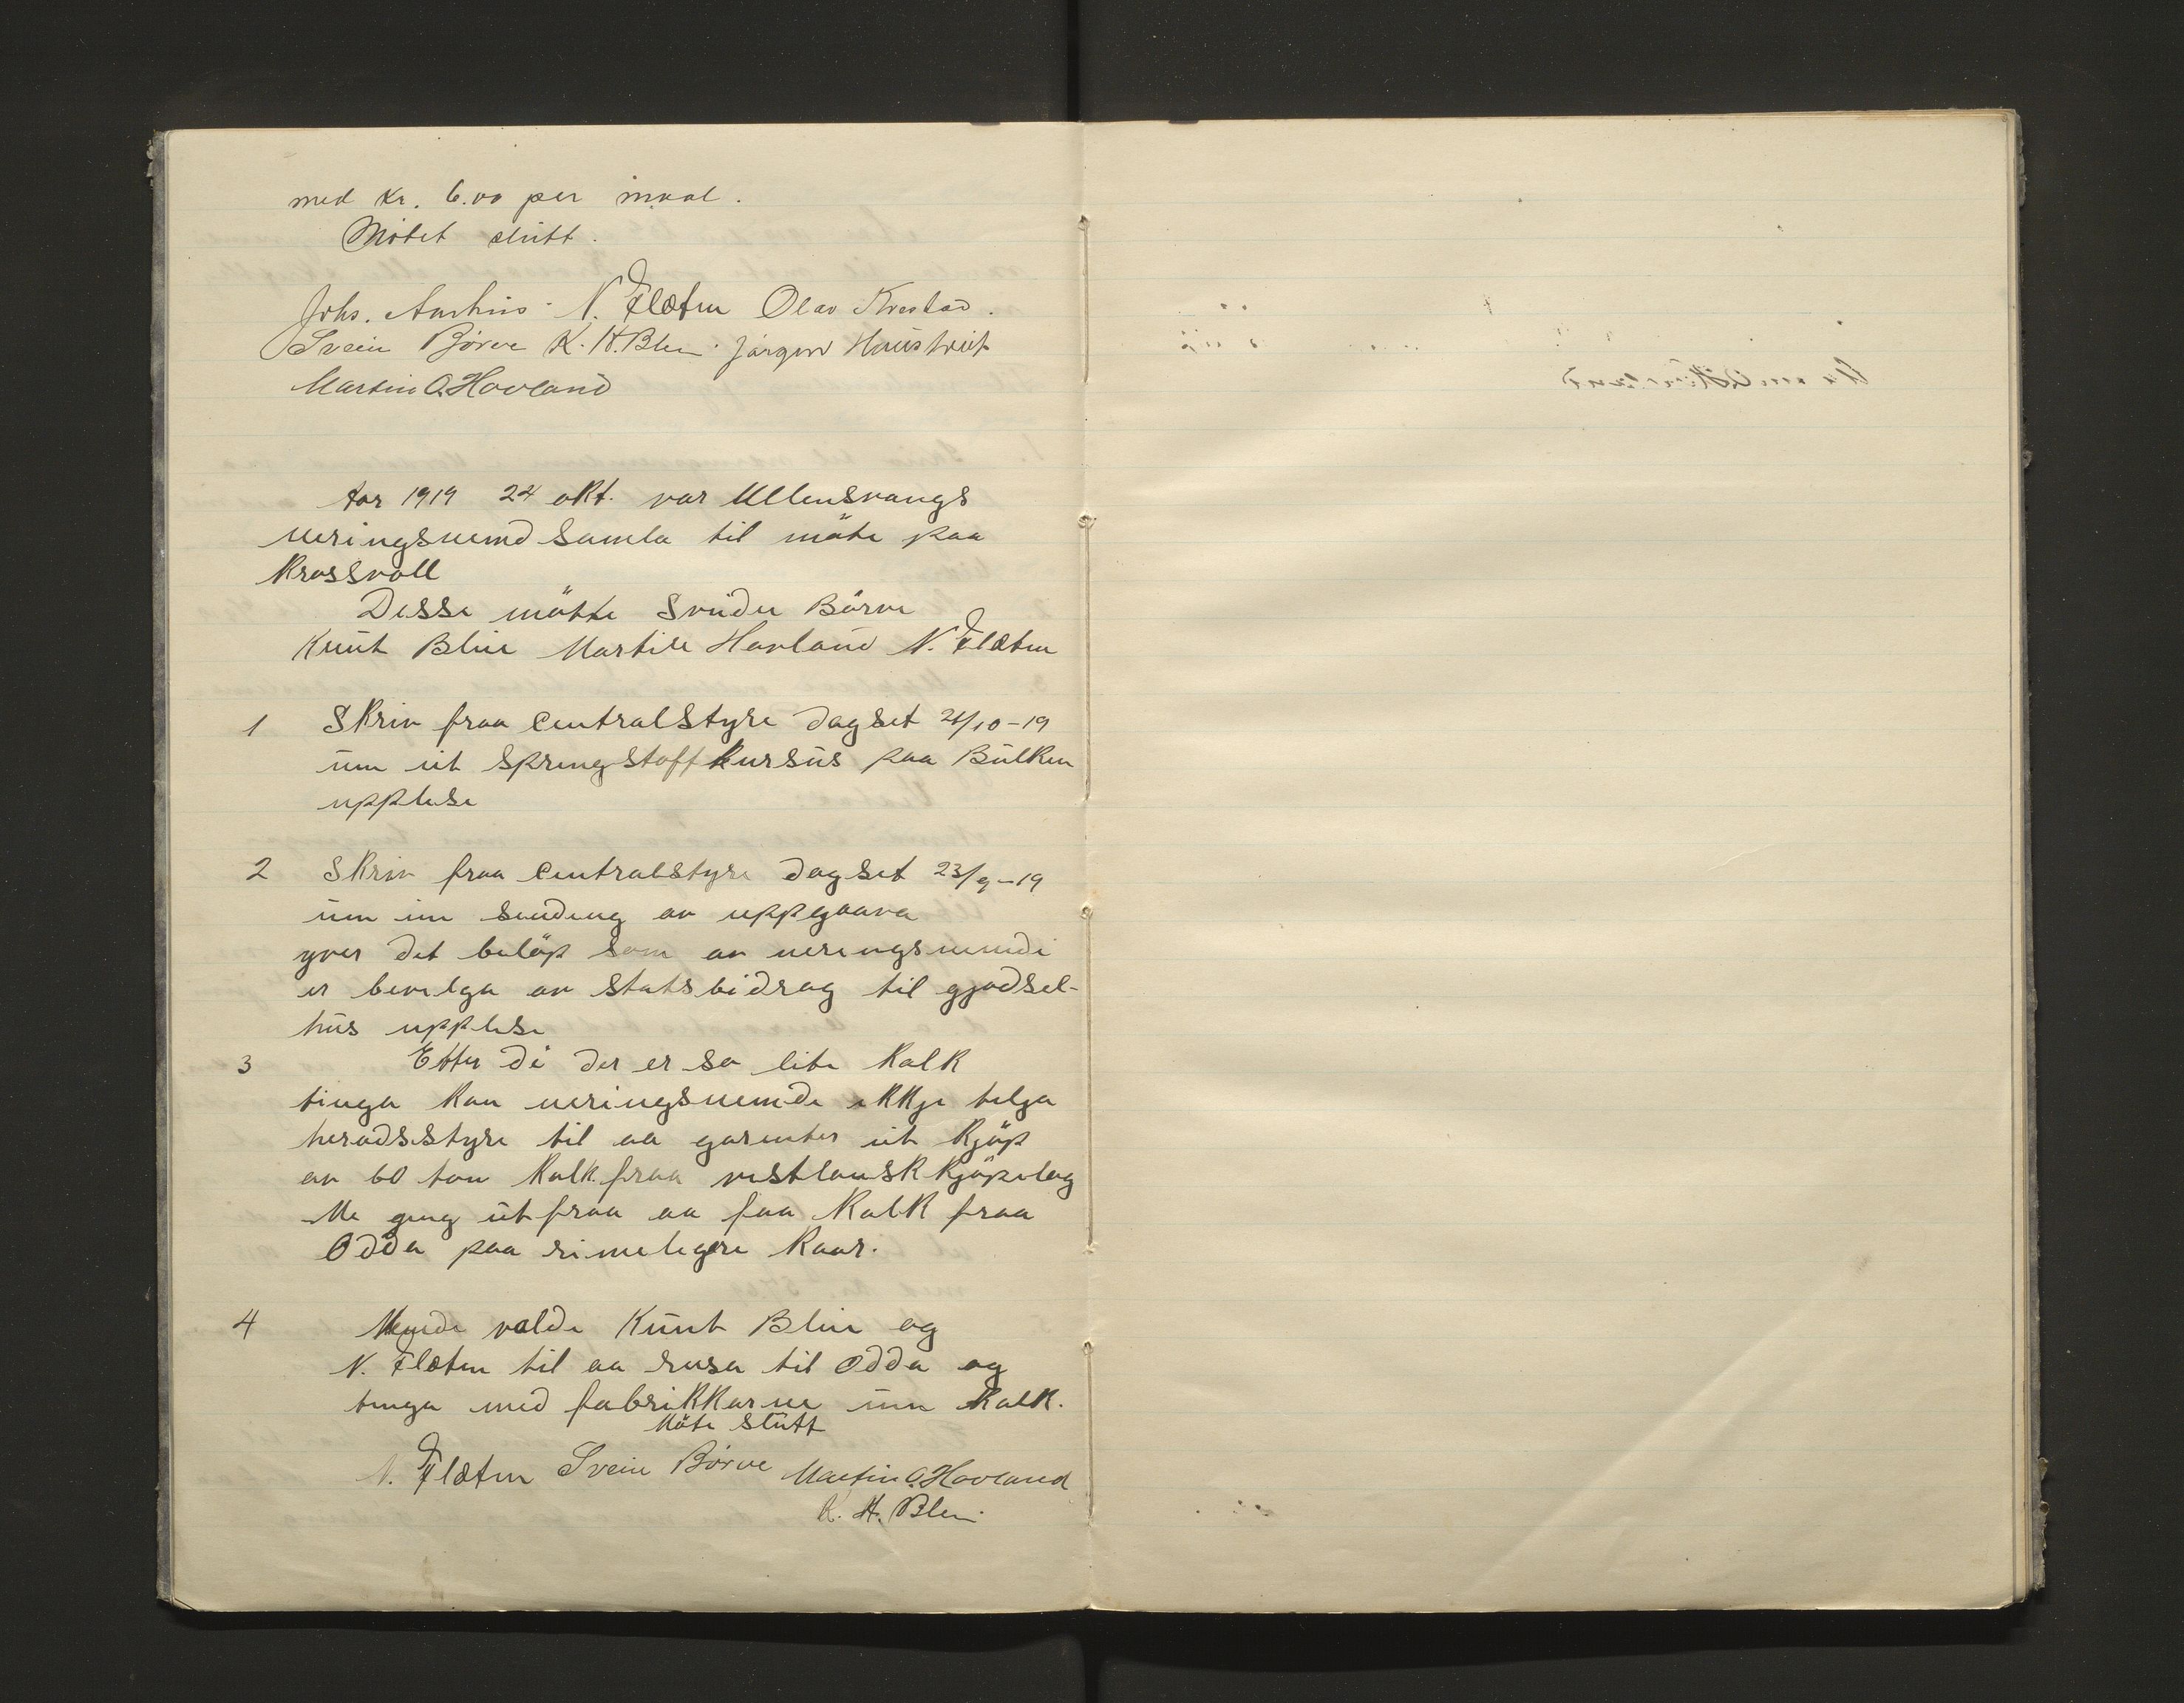 med kr. 6.00 per maal.
Møtet slutt.
Johs. Aarhus. N. Flæten Olav Kvestad.
Svein Børve K. H. Blie. Jørgen Haustveit
Martin O. Hovland
Aar 1919 24 okt. var Ullensvangs
neringsnemd samla til møte paa
Krossvoll
Desse møtte Svein Børve
Knut Blie Martin Hovland N. Flæten
1 Skriv fraa Centralstyre dagset 21/10-19
um eit sprengstoffkursus paa Bulken
upplese
2 Skriv fraa Centralstyre dagset 23/9-19
um inn sending av uppgaava
yver det beløp som av neringsnemdi
er bevilga av statsbidrag til gjødsel-
hus upplese
3 Etter di der er so lite kalk
tinga kan neringsnemde ikkje telja
heradsstyre til aa garenter eit kjøp
av 60 ton kalk fraa vestlansk kjøpelag
Me geng ut fraa aa faa kalk fraa
Odda paa rimelegere kaar.
4 Nemde valde Knut Blie og
N. Flæten til aa reisa til Odda og
tinga med fabrikkarne um kalk.
Møte slutt
N. Flæten Svein Børve Martin O. Hovland
K. H. Blie.